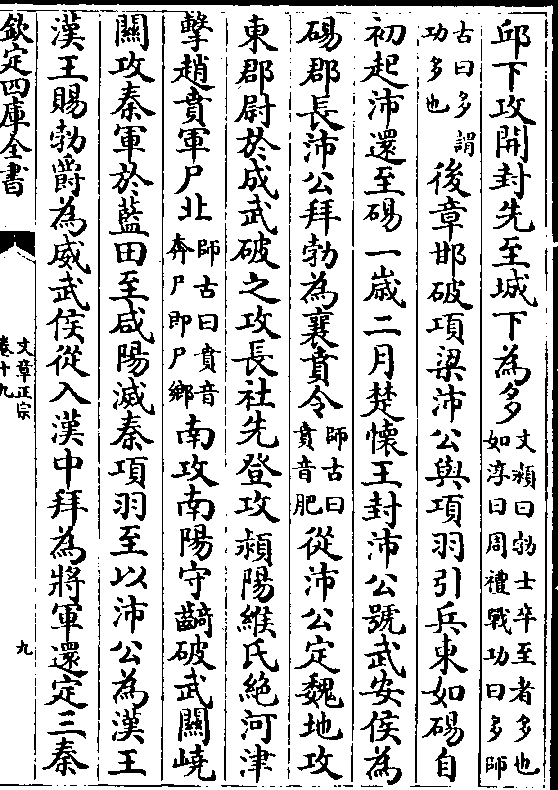 邱下攻開封先至城下為多文潁曰勃士卒至者多也如淳曰周禮戰功曰多師
古曰多謂功多也後章邯破項梁沛公與項羽引兵東如碭自
初起沛還至碭一歲二月楚懷王封沛公號武安侯為
碭郡長沛公拜勃為襄賁令師古曰賁音肥從沛公定魏地攻
東郡尉於成武破之攻長社先登攻潁陽緱氏絶河津
擊趙賁軍尸北師古曰賁音奔尸即尸鄉南攻南陽守齮破武關嶢
關攻秦軍於藍田至咸陽滅秦項羽至以沛公為漢王
漢王賜勃爵為威武侯從入漢中拜為將軍還定三秦
欽定四庫全書
文章正宗
卷十九
九